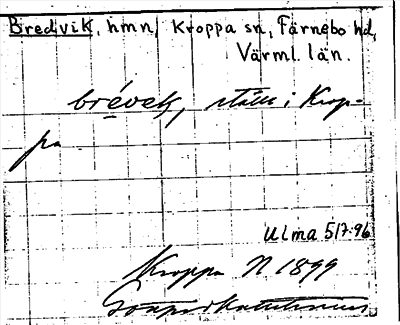 Bredvik, hmn, Kroppa sn, Färnebo hd,
Värml. län.
i Krop-
pa
Ulma 5/7-96
Kroppa N 1899